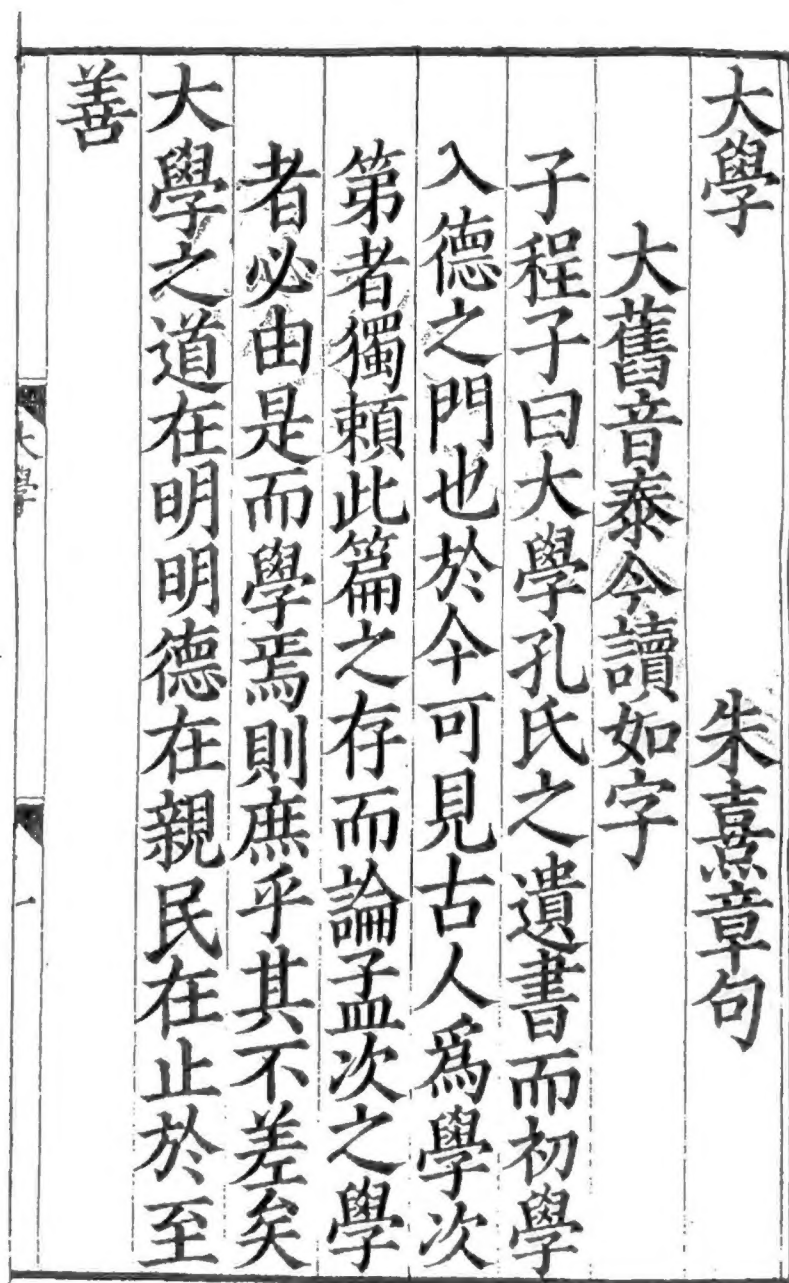 大學 朱熹章句
大舊音泰今讀如字
子程子曰大學孔氏之遺書而初學
入德之門也於今可見古人爲學次
第者獨賴此篇之存而論孟次之學
者必由是而學焉則庶乎其不差矣
大學之道在明明德在親民在止於至
善
大學
一